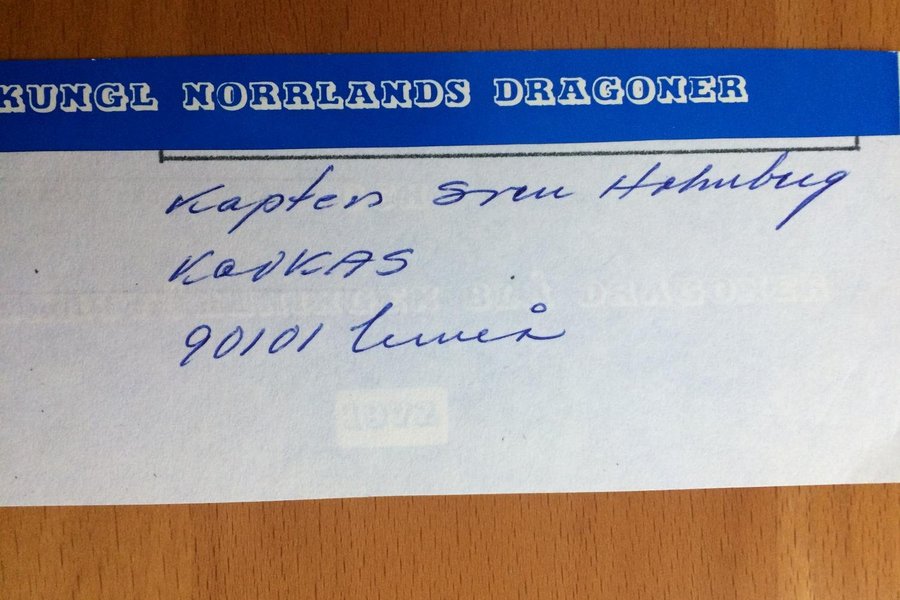 KUNGL NORRLANDS DRAGONER
Kapten Sven Holmberg
90101 Umeå